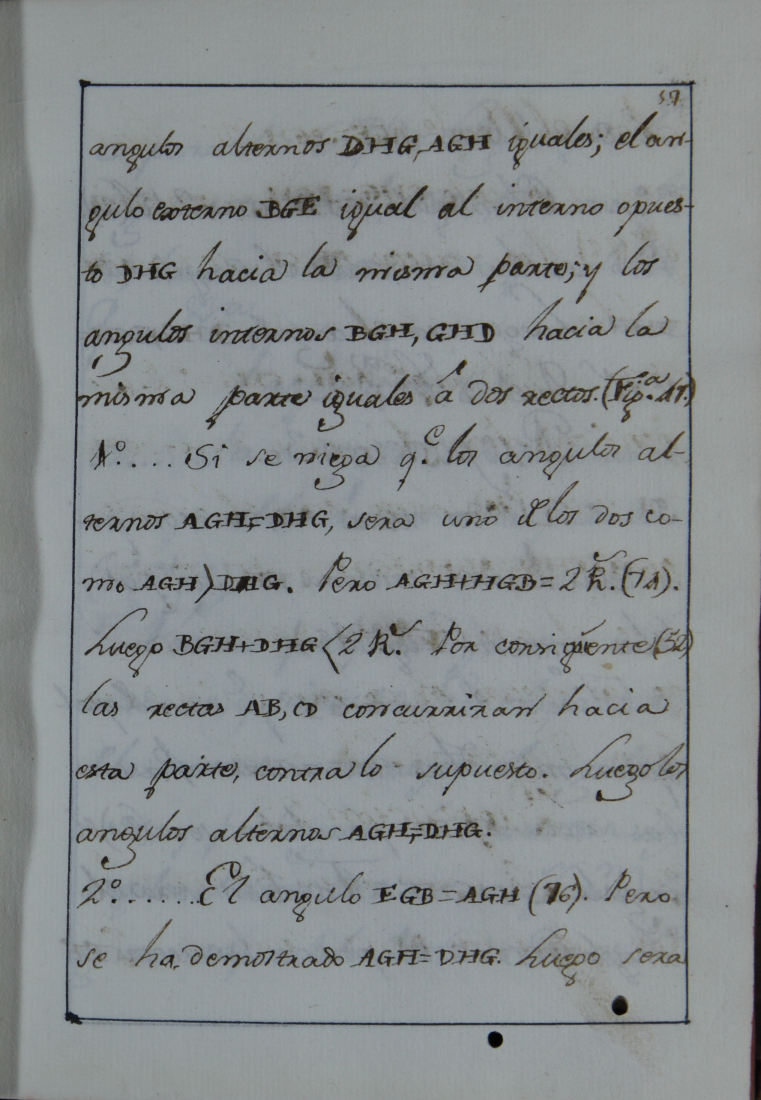 57
angulos alternos DHG, AGH iguales; el an-
gulo externo BGE igual al interno opues-
to DHG hacia la misma parte; y los
angulos internos BGH, GHD hacia la
misma parte iguales á dos rectos. (Fig.ª 47.)
1º.... Si se niega q.e los angulos al-
ternos AGH=DHG, sera uno de los dos co-
mo AGH>DHG. Pero AGH+HGB=2R. (74).
Luego BGH+DHG<2R. Por consiguiente (52)
las rectas AB, CD concurriran hacia
esta parte, contra lo supuesto. Luego los
angulos alternos AGH=DHG.
2º...... El angulo EGB=AGH (76). Pero
se ha demostrado AGH=DHG. Luego sera